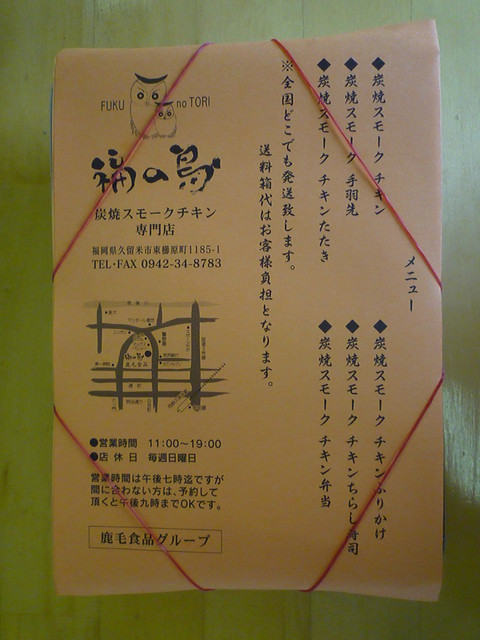 メニュー
◆炭焼スモーク チキン
◆炭焼スモーク 手羽先
◆炭焼スモーク チキンたたき
◆炭焼スモーク チキンふりかけ
◆炭焼スモーク チキンちらし寿司
◆炭焼スモーク チキン弁当
※全国どこでも発送致します。
送料箱代はお客様負担となります。
FUKU no TORI
福の鳥
炭焼スモークチキン
専門店
福岡県久留米市東櫛原町1185-1
TEL・FAX 0942-34-8783
鹿毛食品
●営業時間 11:00～19:00
●店休日 毎週日曜日
営業時間は午後七時迄ですが
間に合わない方は、予約して
頂くと午後九時までOKです。
鹿毛食品グループ